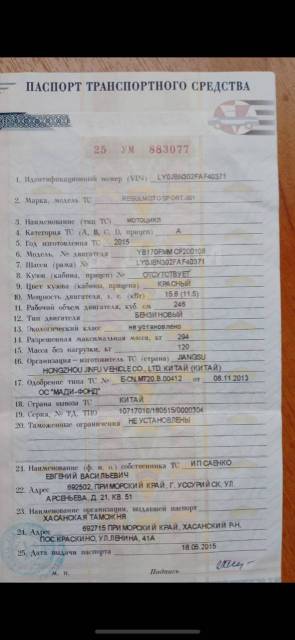 ПАСПОРТ ТРАНСПОРТНОГО СРЕДСТВА
25 УМ 883077
1. Идентификационный номер (VIN)
2. Марка, модель ТС REGULMOTO SPORT-001
3. Наименование (тип ТС) МОТОЦИКЛ
4. Категория ТС (А, В, С, D, прицеп) А
5. Год изготовления ТС 2015
6. Модель, № двигателя
7. Шасси (рама) №
8. Кузов (кабина, прицеп) № ОТСУТСТВУЕТ
9. Цвет кузова (кабины, прицепа) КРАСНЫЙ
10. Мощность двигателя, л. с. (кВт) 15.6 (11.5)
11. Рабочий объем двигателя, куб. см 246
12. Тип двигателя БЕНЗИНОВЫЙ
13. Экологический класс не установлено
14. Разрешенная максимальная масса, кг 294
15. Масса без нагрузки, кг 120
16. Организация-изготовитель ТС (страна) JIANGSU
HONGZHOU JINFU VEHICLE CO., LTD. КИТАЙ (КИТАЙ)
17. Одобрение типа ТС № E-CN.MT20.B.00412 от 06.11.2013
ОС "МАДИ-ФОНД"
18. Страна вывоза ТС КИТАЙ
19. Серия, № ТД, ТПО 10717010/180515/0000304
20. Таможенные ограничения НЕ УСТАНОВЛЕНЫ
21. Наименование (ф. и. о.) собственника ТС ИПСАЕНКО
ЕВГЕНИЙ ВАСИЛЬЕВИЧ
22. Адрес 692502, ПРИМОРСКИЙ КРАЙ, Г. УССУРИЙСК, УЛ
АРСЕНЬЕВА, Д. 21, КВ. 51
23. Наименование организации, выдавшей паспорт
ХАСАНСКАЯ ТАМОЖНЯ
24. Адрес 692715 ПРИМОРСКИЙ КРАЙ, ХАСАНСКИЙ Р-Н,
ПОС.КРАСКИНО, УЛ.ЛЕНИНА, 41А
25. Дата выдачи паспорта 18.05.2015
М. П. Подпись